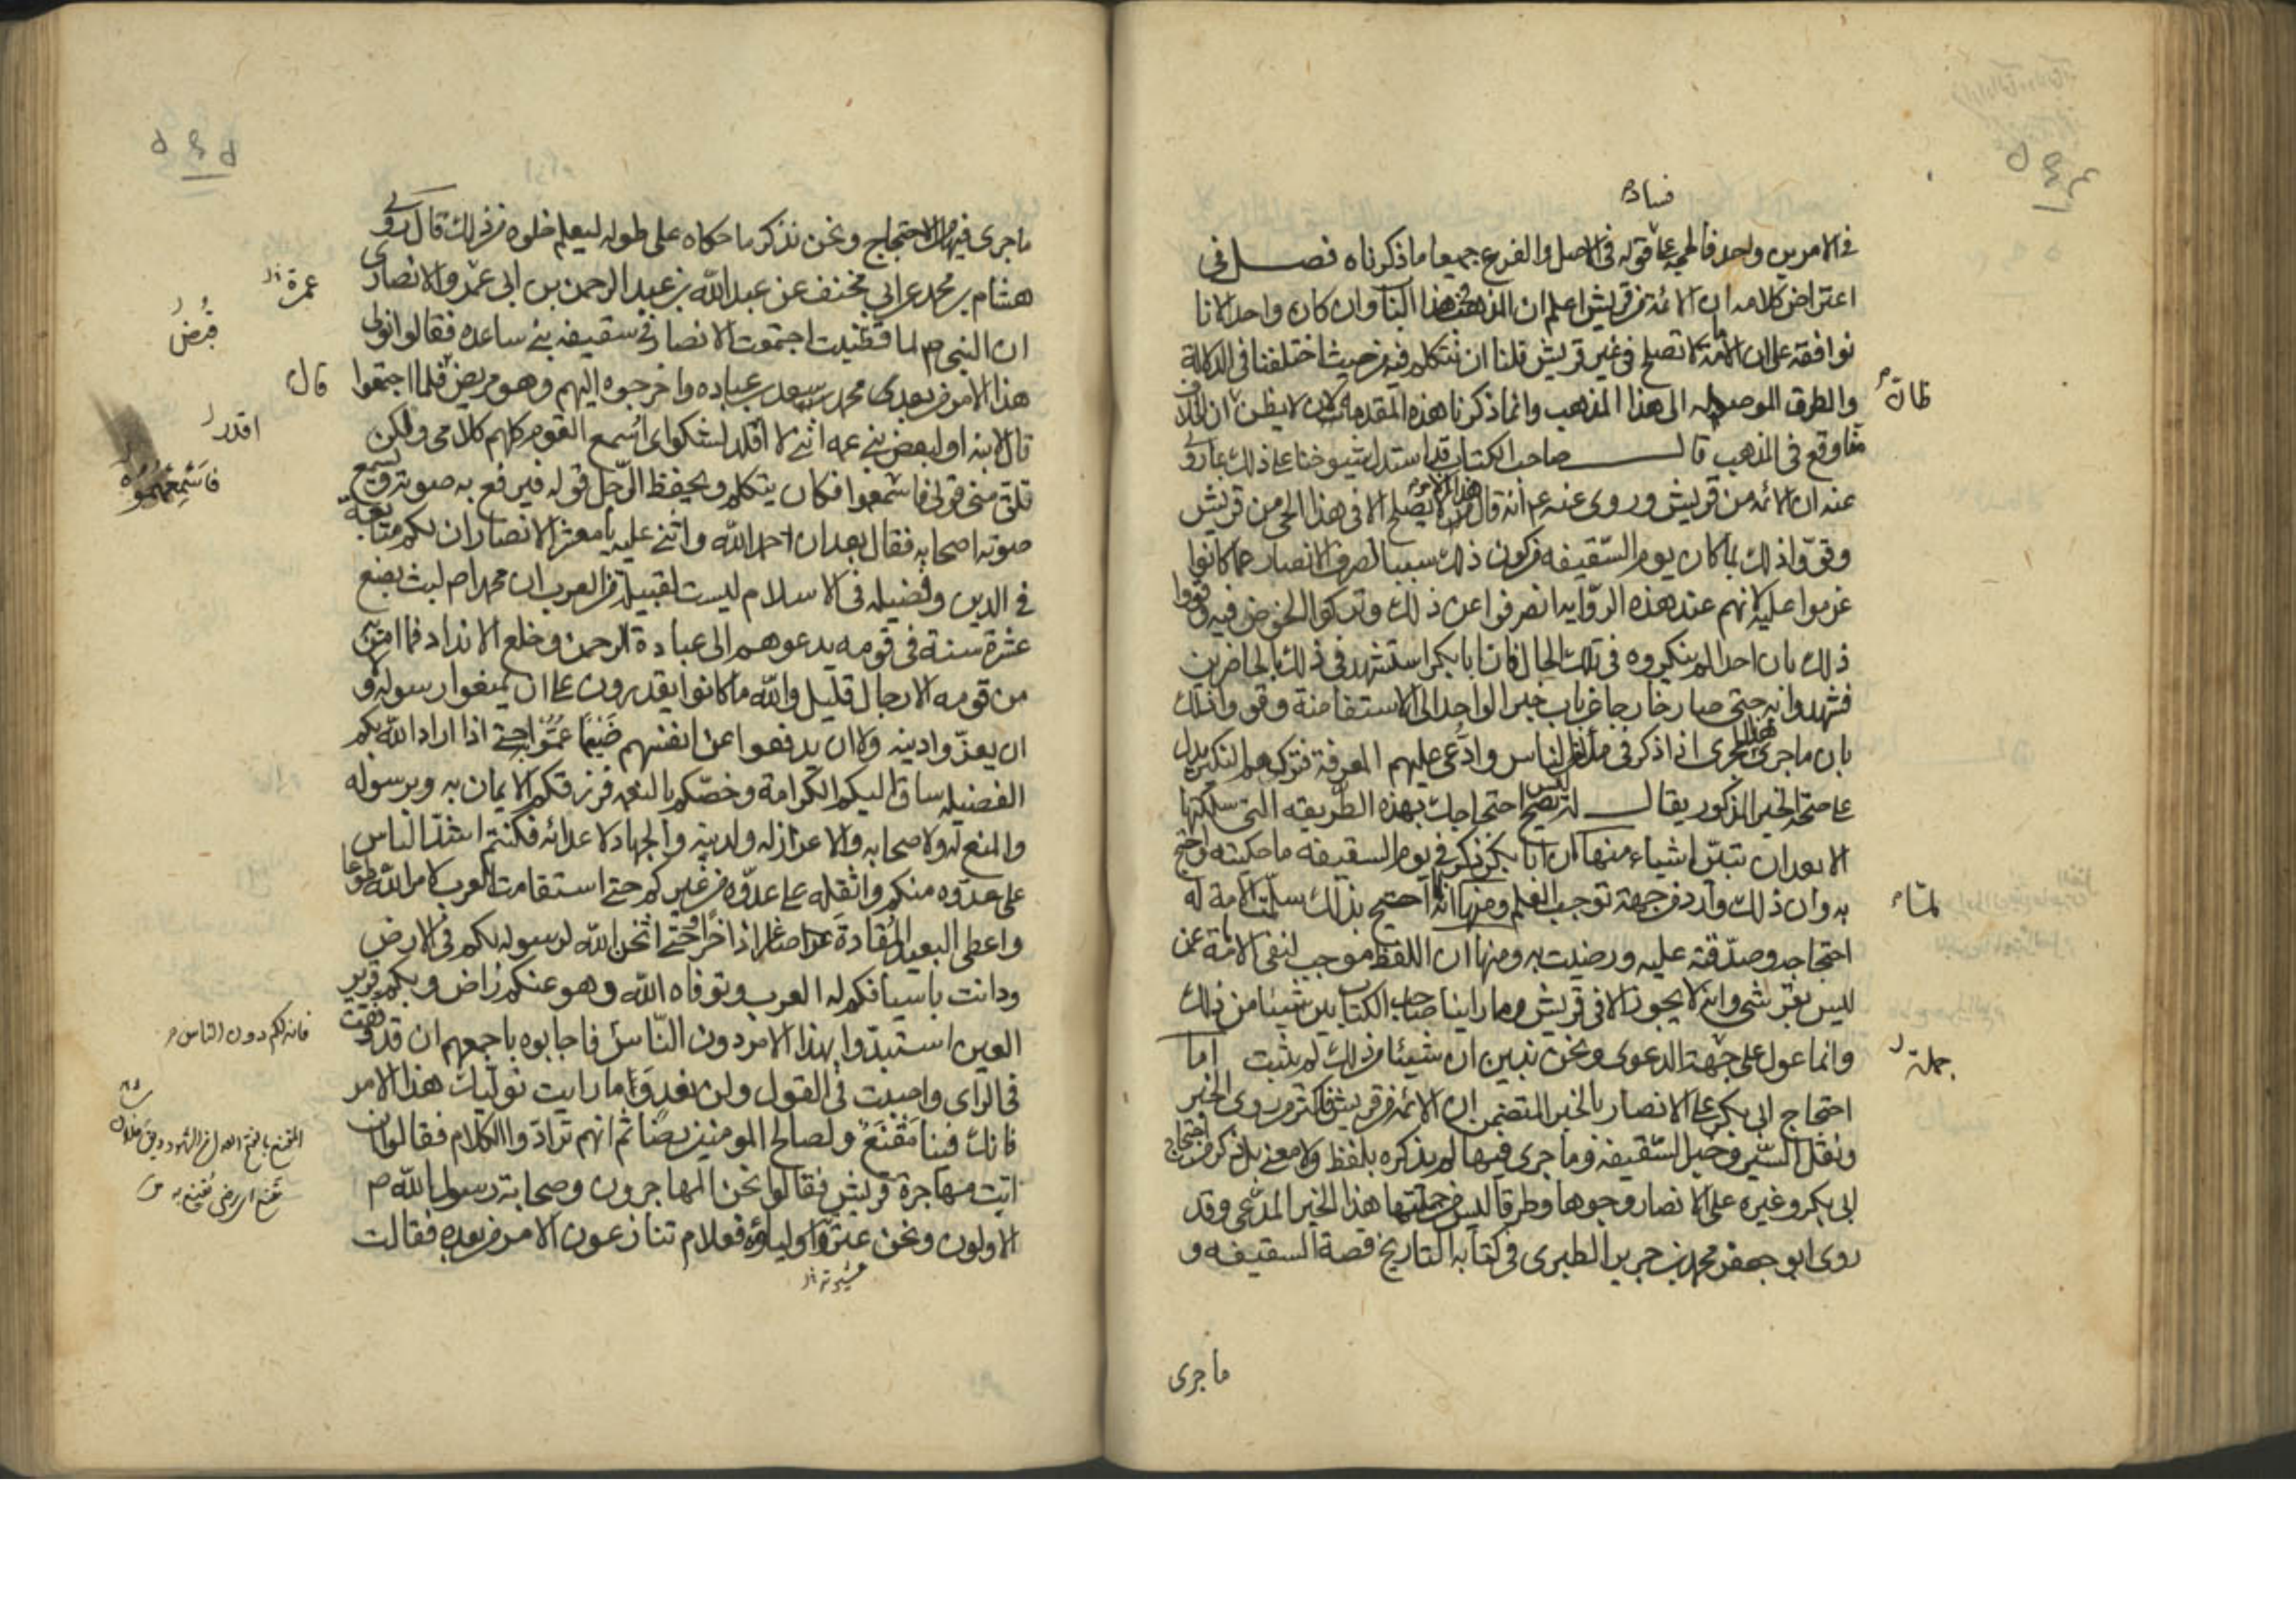 فساده
في الامرين واحد فالحجة على قوله في الاصل والفرع جميعا ما ذكرناه فصل في
اعتراض كلامه ان الائمة من قريش اعلم ان المذهب في هذا الباب وان كان واحدا لانا
نوافقه على ان الامامة لا تصلح في غير قريش قلنا ان نتكلم فيه من حيث اختلفنا في الدلالة
والطرق الموصلة الى هذا المذهب وانما ذكرنا هذه المقدمة لان لا يظن ظان ان الخلاف
منا وقع في المذهب قال صاحب الكتاب قد استدل شيوخنا على ذلك بما روى
عنه ان الائمة من قريش وروى عنه ع انه قال هذا الامر لا يصلح الا في هذا الحي من قريش
وقووا ذلك بما كان يوم السقيفه من كون ذلك سببا لصرف الانصار عما كانوا
عزموا عليه لانهم عند هذه الروايه انصرفوا عن ذلك وتركوا الخوض فيه وقووا
ذلك بان احدا لم ينكروه في تلك الحال فان ابا بكر استشهد في ذلك بالحاضرين
فشهدوا به حتى صار خارجا عن باب خبر الواحد الى الاستفاضة وقووا ذلك
بان ما جرى هذا المجرى اذا ذكر في ملأ من الناس وادعى عليهم المعرفة فتركهم النكير يدل
على صحة الخبر المذكور يقال له ليس يصح احتجاجك بهذه الطريقه التي سلكتها
الا بعد ان تبين اشياء منها ان ابا بكر ذكر في يوم السقيفه ما حكيته واحتج
به وان ذلك وارد من جهة توجب العلم ومنها انه لما احتج بذلك سلمت الامة له
احتجاجه وصدقته عليه ورضيت به ومنها ان اللفظ موجب لنفي الامامة عن
ليس بقرشي وانه لا يجوز الا في قريش وما راينا صاحب الكتاب بين شيئا من ذلك
وانما عول على جهة الدعوى ونحن نبين ان شيئا من ذلك لم يثبت اما
احتجاج ابي بكر على الانصار بالخبر المتضمن ان الائمة من قريش فاكثر من روى الخبر
ونقل السير وخبر السقيفه وما جرى فيها لم يذكره بلفظ ولا معنى بل ذكر من احتجاج
ابي بكر وغيره على الانصار وجوها وطرقا ليس من جملتها هذا الخبر المدعى وقد
روى ابو جعفر محمد بن جرير الطبري في كتابه التاريخ قصة السقيفه و
ما جرى
ظان
لما
جملة
٥٤٥
ما جرى فيها من الاحتجاج ونحن نذكر ما حكاه على طوله ليعلم خلوه من ذلك قال روى
هشام بن محمد عن ابي مخنف عن عبد الله بن عبد الرحمن بن ابي عمرو الانصارى
ان النبي ص لما قبض اجتمعت الانصار في سقيفه بني ساعده فقالوا نولى
هذا الامر من بعدى محمد سعد بن عباده واخرجوه اليهم وهو مريض فلما اجتمعوا
قال لابنه او لبعض بني عمه انني لا اقدر لشكواى اسمع القوم كلهم كلامى ولكن
تلق منى قولى فاسمعوا فكان يتكلم ويحفظ الرجل قوله فيرفع به صوته ويسمع
صوته اصحابه فقال بعد ان حمد الله واثنى عليه يا معشر الانصار ان لكم سابقة
في الدين وفضيله في الاسلام ليست لقبيلة من العرب ان محمدا ص لبث بضع
عشرة سنة في قومه يدعوهم الى عبادة الرحمن وخلع الانداد فما امن به
من قومه الا رجال قليل والله ما كانوا يقدرون على ان يمنعوا رسوله و
ان يعزوا دينه ولا ان يدفعوا عن انفسهم ضيما عموا به حتى اذا اراد الله بكم
الفضيله ساق اليكم الكرامة وخصكم بالنعمه فرزقكم الايمان به وبرسوله
والمنع له ولاصحابه والاعزاز له ولدينه والجهاد لاعدائه فكنتم اشد الناس
على عدوه منكم واثقله على عدوه من غيركم حتى استقامت العرب لامر الله طوعا
واعطى البعيد المقادة صاغرا داخرا حتى اثخن الله لرسوله لكم في الارض
ودانت باسيافكم له العرب وتوفاه الله وهو عنكم راض وبكم قرير
العين استبدوا بهذا الامر دون الناس فاجابوه باجمعهم ان قد وفقت
في الراى واصبت في القول ولن نعدو ما رايت نوليك هذا الامر
فانك فينا مقنع ولصالح المومنين رضا ثم انهم ترادوا الكلام فقالوا فان
ابت مهاجرة قريش فقالوا نحن المهاجرون وصحابة رسول الله ص
الاولون ونحن عترته واولياؤه فعلام تنازعون الامر من بعده فقالت
عشيرته
عمرة
قبض
قال
اقدر
فانه لكم دون الناس